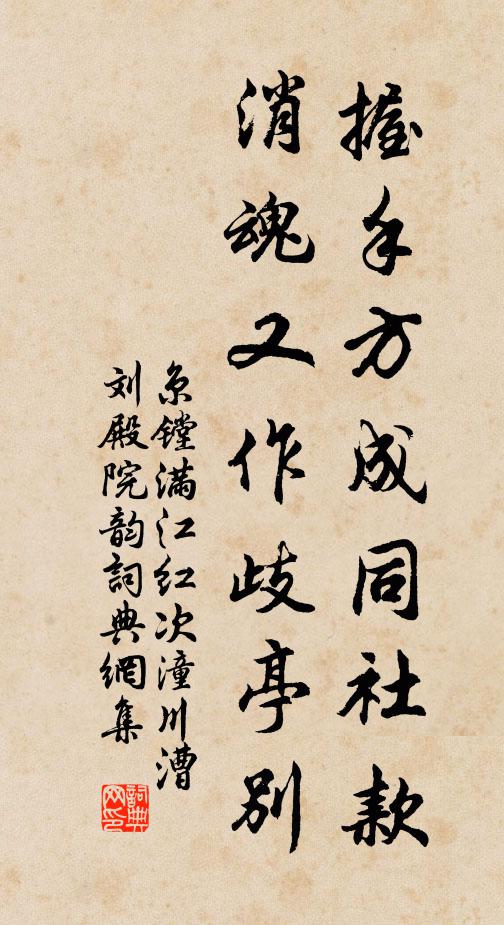 握手方成同社款
消魂又作歧亭别
京镗满江红次潼川漕
刘殿院韵詞典網集
詞典网印